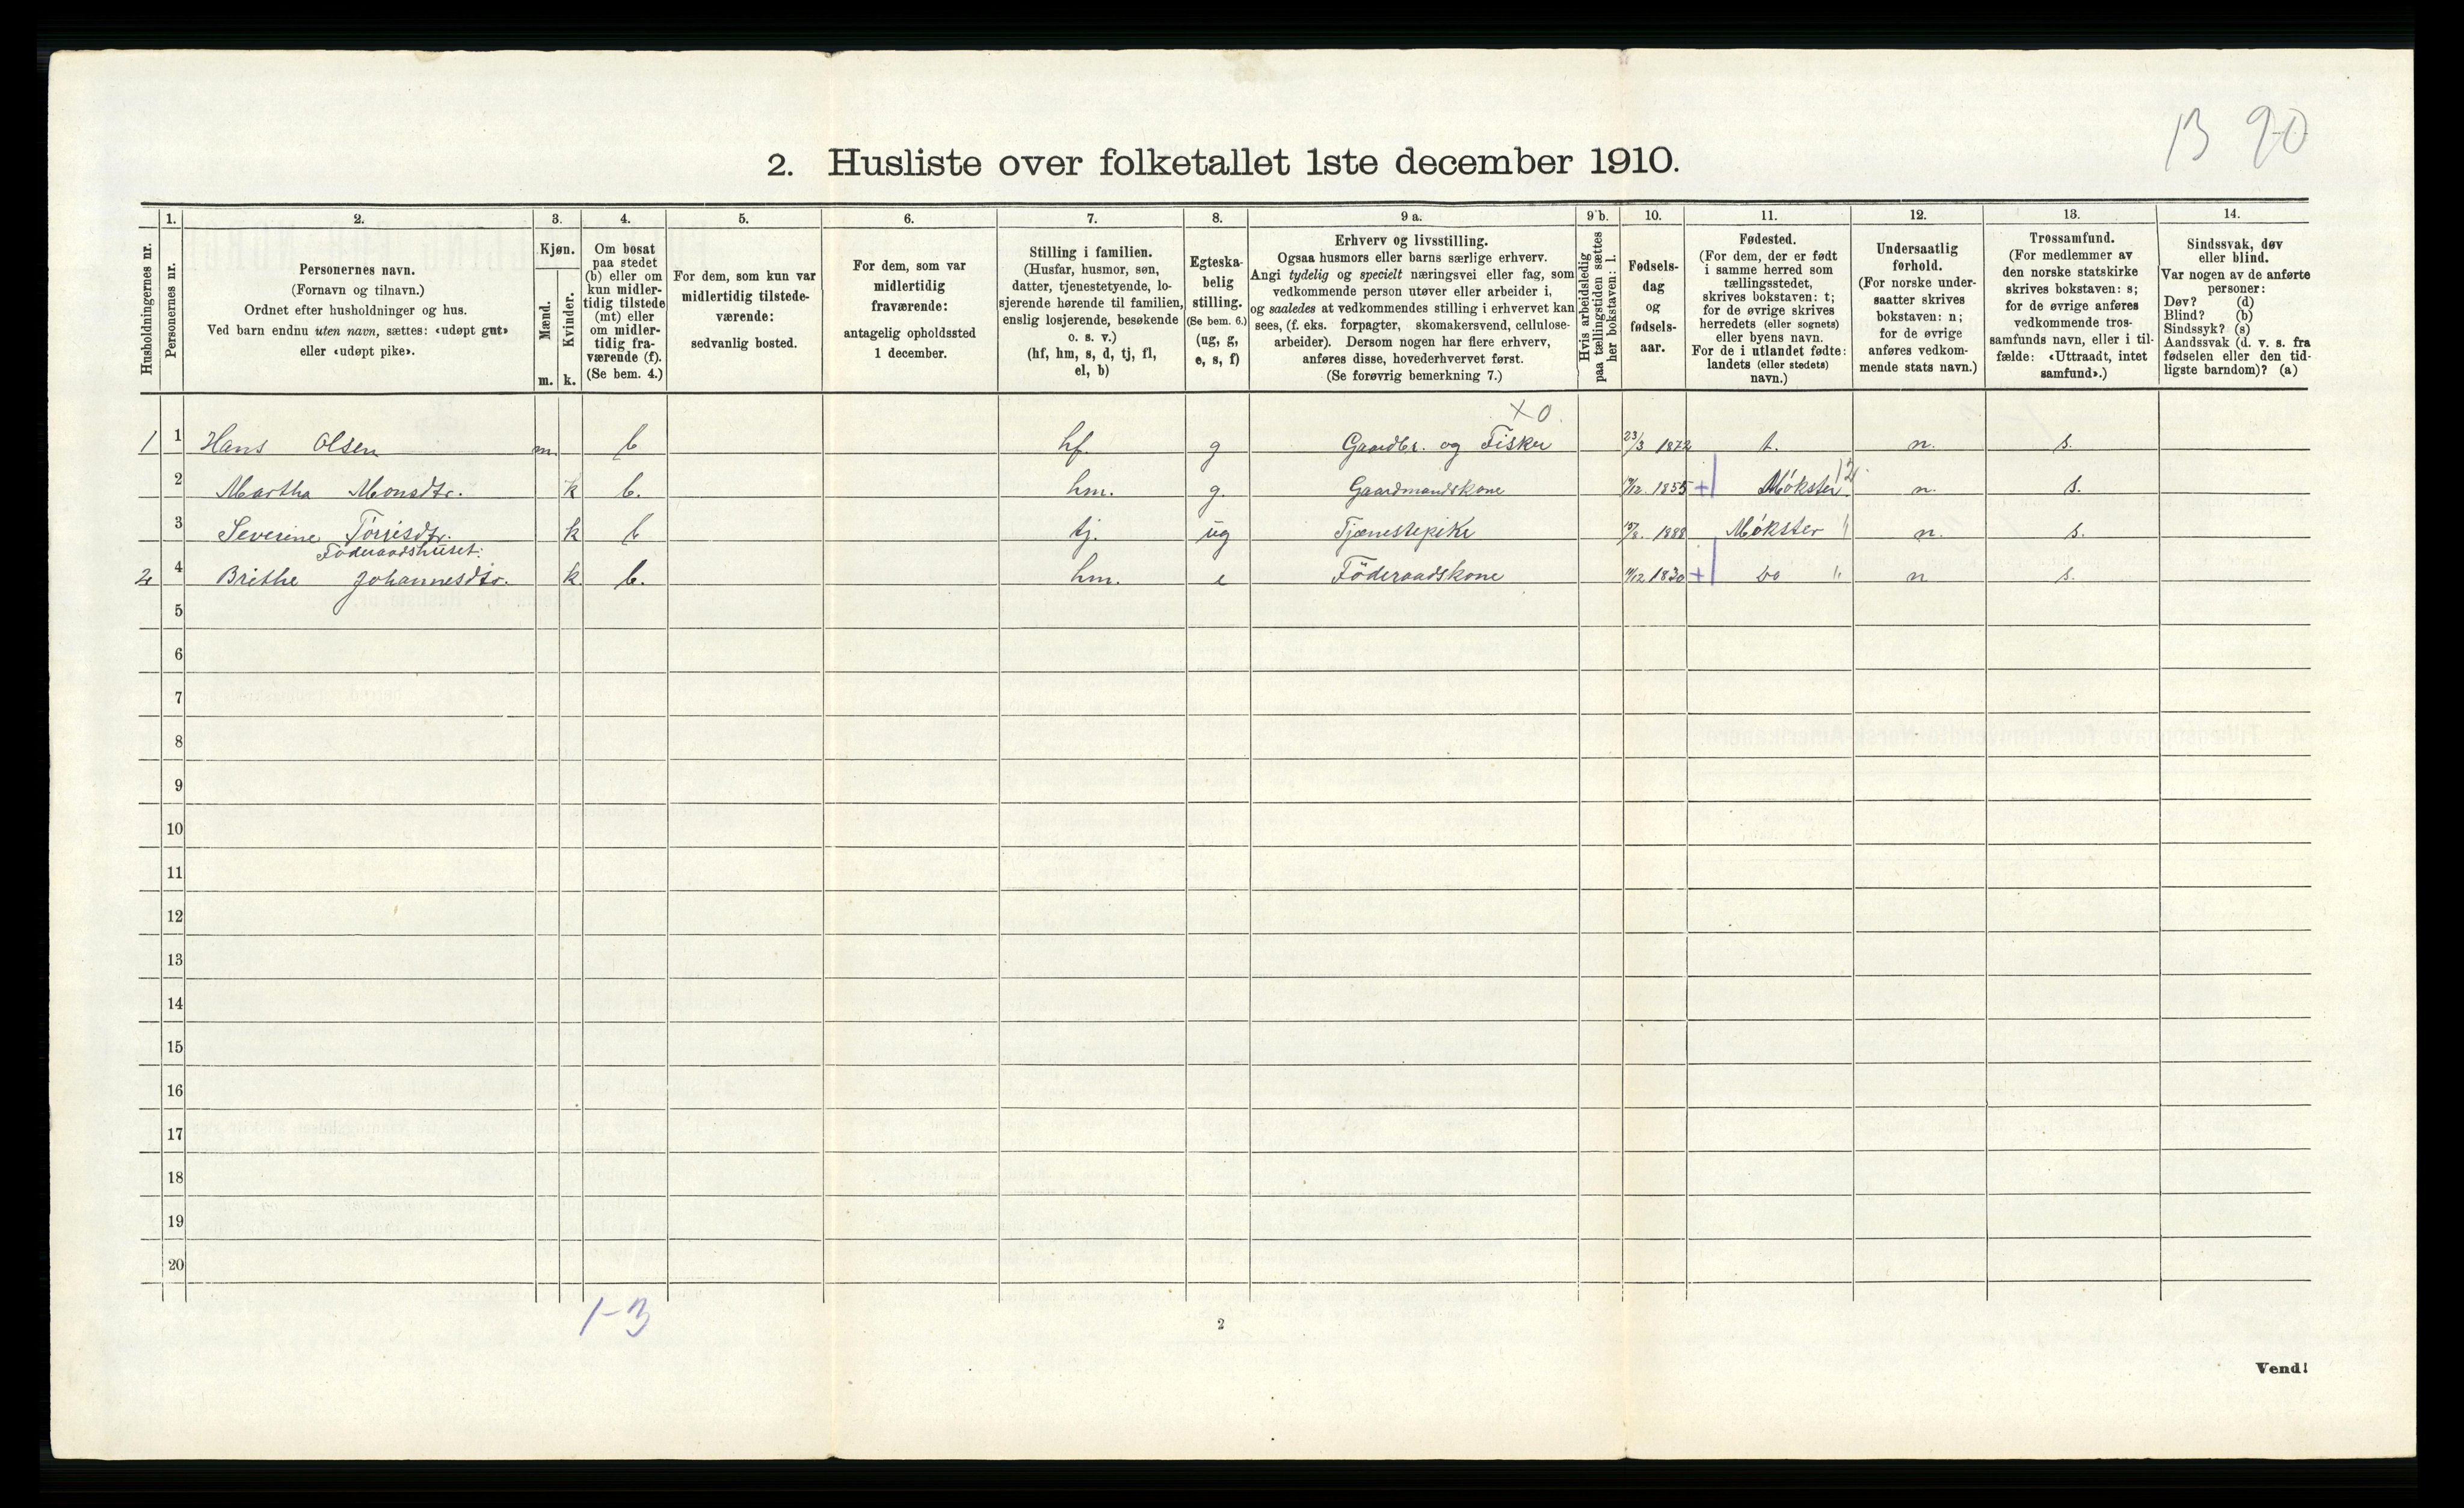 13 90
2. Husliste over folketallet 1ste december 1910.
Husholdningernes nr.
1. Personernes nr.
2. Personernes navn.
(Fornavn og tilnavn.)
Ordnet efter husholdninger og hus.
Ved barn endnu uten navn, sættes: «udøpt gut»
eller «udøpt pike».
3. Kjøn.
Mænd. Kvinder.
m. k.
4. Om bosat
paa stedet
(b) eller om
kun midler-
tidig tilstede
(mt) eller
om midler-
tidig fra-
værende (f).
(Se bem. 4.)
5. For dem, som kun var
midlertidig tilstede-
værende:
sedvanlig bosted.
6. For dem, som var
midlertidig
fraværende:
antagelig opholdssted
1 december.
7. Stilling i familien.
(Husfar, husmor, søn,
datter, tjenestetyende, lo-
sjerende hørende til familien,
enslig losjerende, besøkende
o. s. v.)
(hf, hm, s, d, tj, fl,
el, b)
8. Egteska-
belig
stilling.
(Se bem. 6.)
(ug, g,
e, s, f)
9 a. Erhverv og livsstilling.
Ogsaa husmors eller barns særlige erhverv.
Angi tydelig og specielt næringsvei eller fag, som
vedkommende person utøver eller arbeider i,
og saaledes at vedkommendes stilling i erhvervet kan
sees, (f. eks. forpagter, skomakersvend, cellulose-
arbeider). Dersom nogen har flere erhverv,
anføres disse, hovederhvervet først.
(Se forøvrig bemerkning 7.)
9 b. Hvis arbeidsledig
paa tællingstiden sættes
her bokstaven: l.
10. Fødsels-
dag
og
fødsels-
aar.
11. Fødested.
(For dem, der er født
i samme herred som
tællingsstedet,
skrives bokstaven: t;
for de øvrige skrives
herredets (eller sognets)
eller byens navn.
For de i utlandet fødte:
landets (eller stedets)
navn.)
12. Undersaatlig
forhold.
(For norske under-
saatter skrives
bokstaven: n;
for de øvrige
anføres vedkom-
mende stats navn.)
13. Trossamfund.
(For medlemmer av
den norske statskirke
skrives bokstaven: s;
for de øvrige anføres
vedkommende tros-
samfunds navn, eller i til-
fælde: «Uttraadt, intet
samfund».)
14. Sindssvak, døv
eller blind.
Var nogen av de anførte
personer:
Døv? (d)
Blind? (b)
Sindssyk? (s)
Aandssvak (d. v. s. fra
fødselen eller den tid-
ligste barndom)? (a)
x0.
1 1 Hans Olsen m. b hf. g Gaardbr. og Fisker 23/3 1872 t. n. s.
2 Martha Monsdtr. k b. hm. g. Gaardmandskone 1855 + Møkster 12 n. s.
3 Severine Torrisdtr. k b tj. ug Tjenestepike 1888 Møkster " n. s.
Føderaadshuset:
2 4 Brithe Johannesdtr. k. b. hm. e Føderaadskone 1830 + do " n s.
5
6
7
8
9
10
11
12
13
14
15
16
17
18
19
20
1-3
2
Vend!